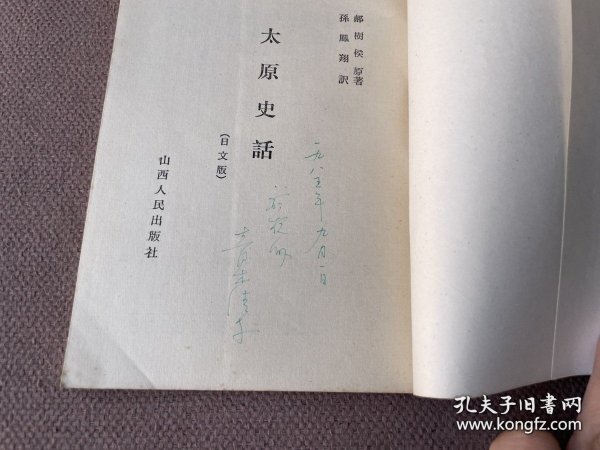 郝樹侯原著
孫鳳翔訳
太原史話
(日文版)
山西人民出版社
一九八五年九月一日
孔夫子旧书网
www.kongfz.com